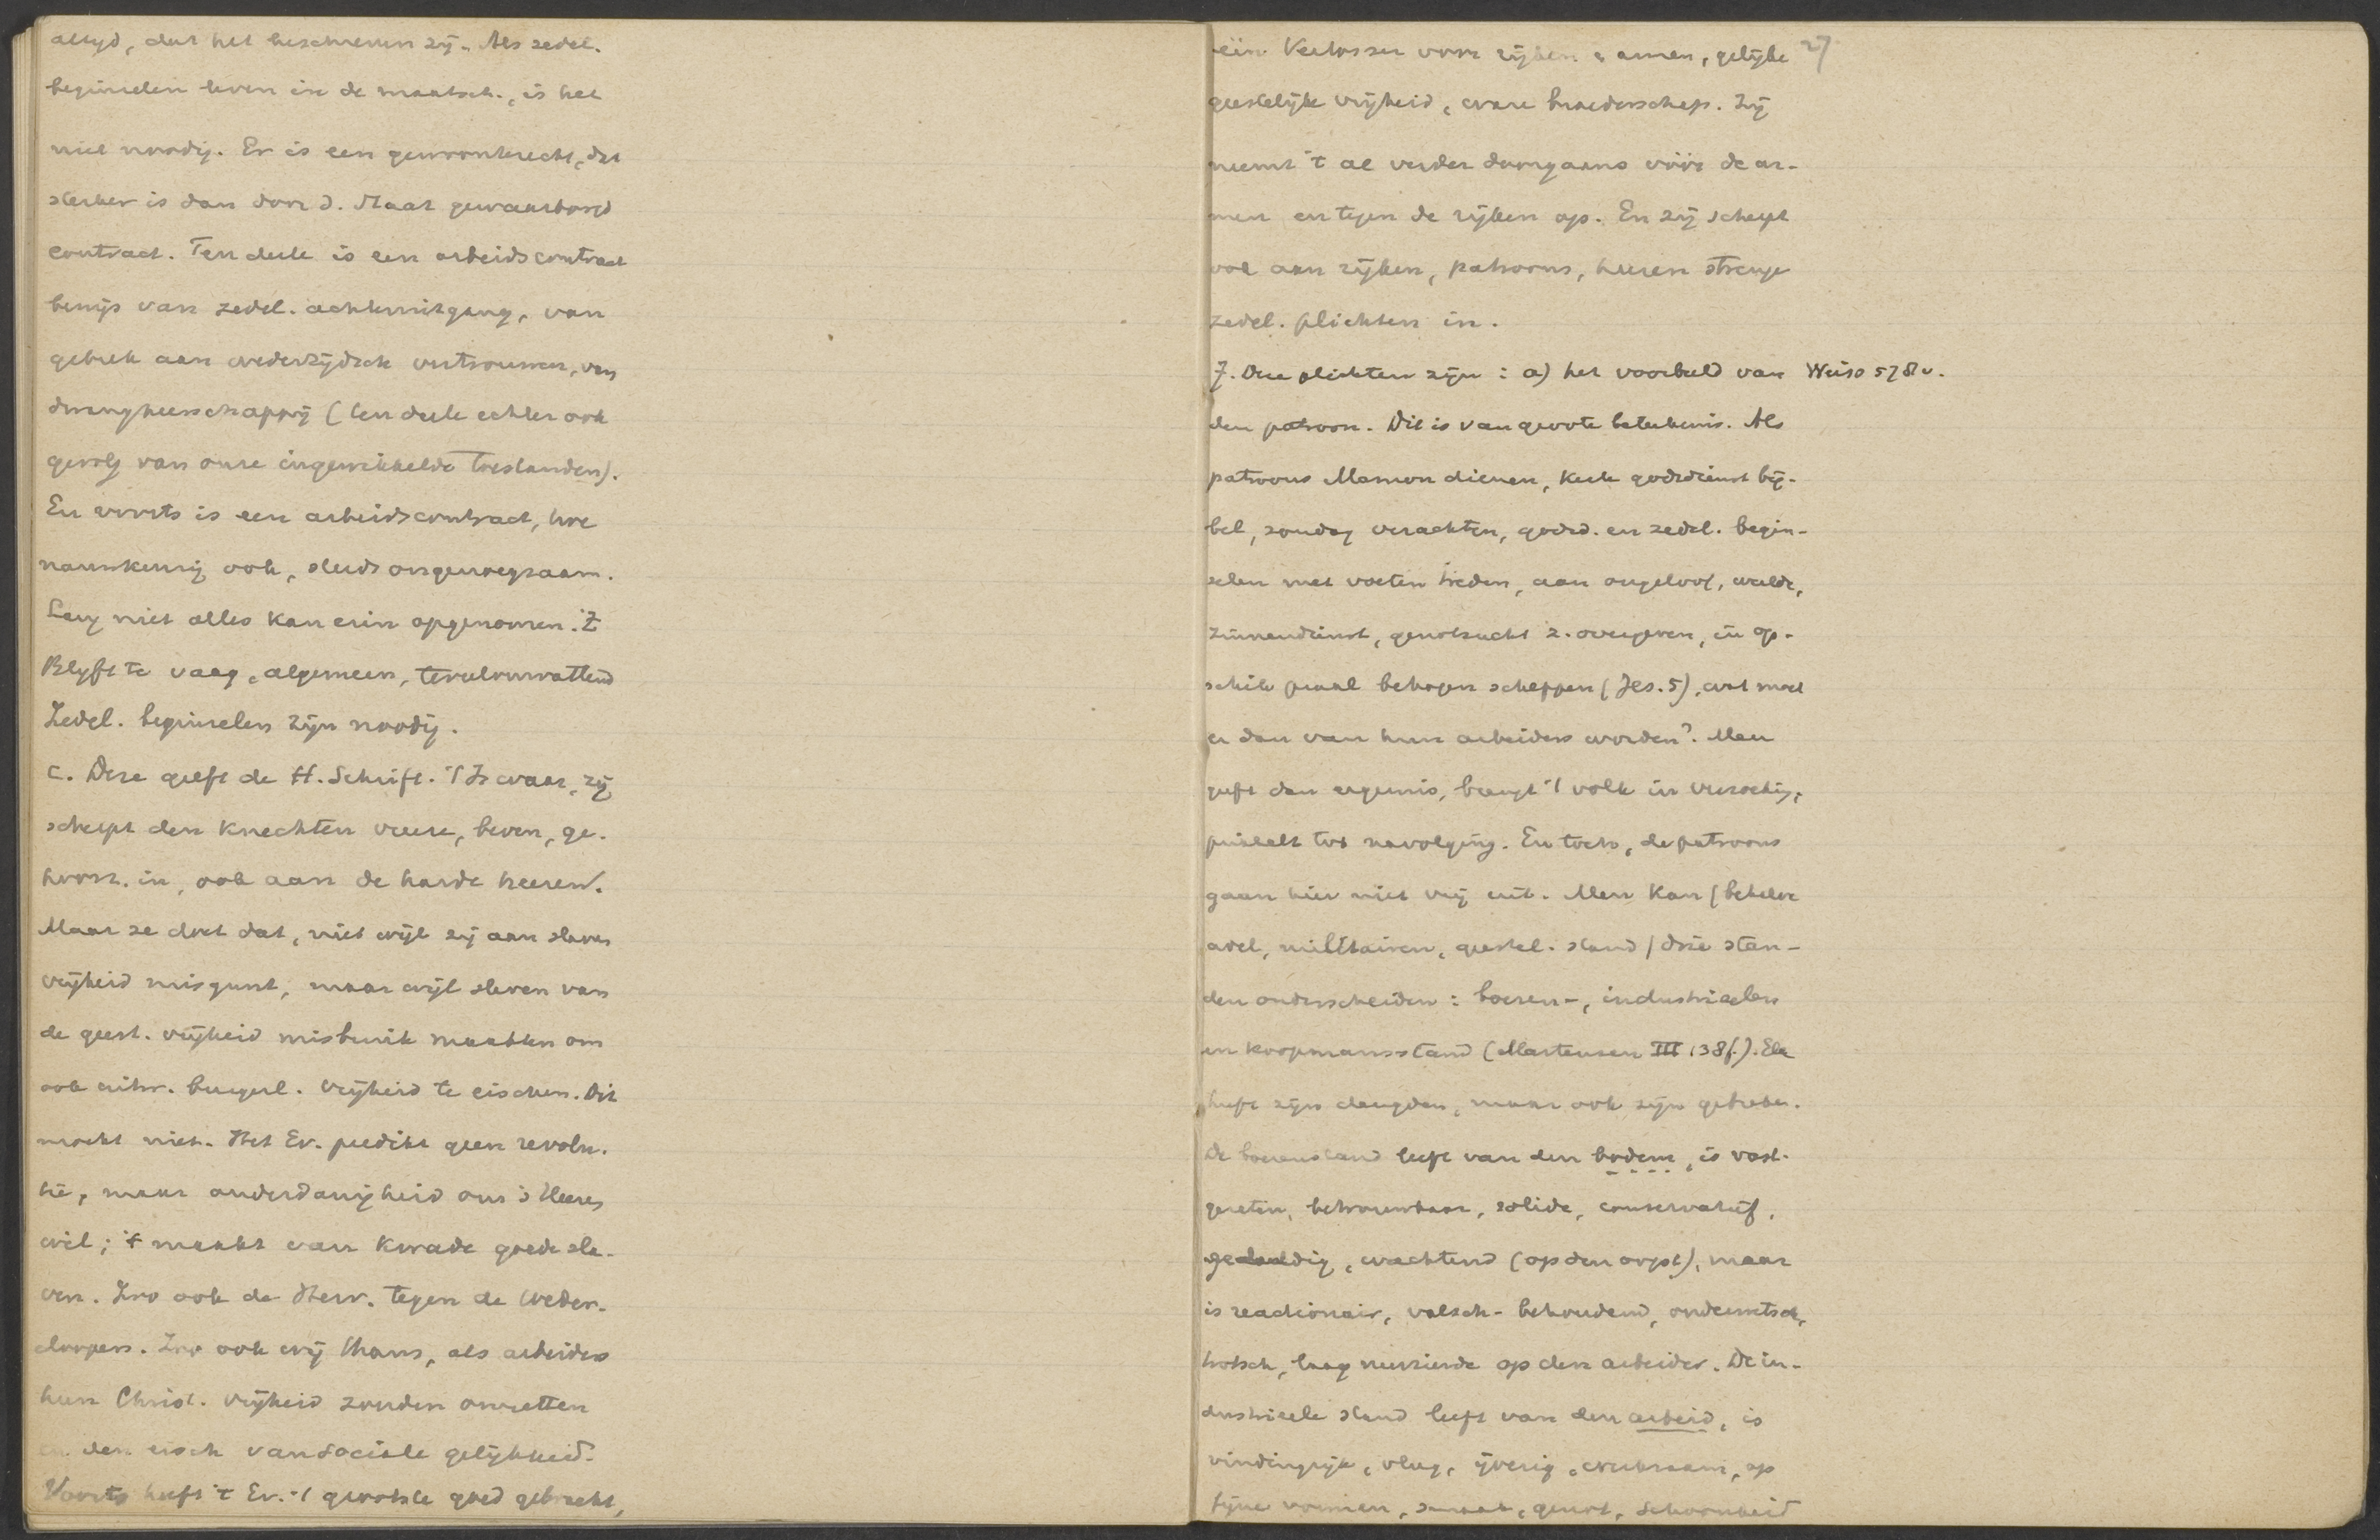 altyd, dat het beschreven zij. Als zedel.
beginselen leven in de maatsch., is het
niet noodig. Er is een gewoonterecht, dat
sterker is dan door d. Staat gewaarborgd
contract. Ten deele is een arbeidscontract
bewijs van zedel. achteruitgang, van
gebrek aan wederzijdsch vertrouwen, van
dwangheerschappij (ten deele echter ook
gevolg van onze ingewikkelde toestanden).
En voorts is een arbeidscontract, hoe
nauwkeurig ook, steeds ongenoegzaam.
Lang niet alles kan erin opgenomen. 't
Blyft te vaag, algemeen, veelomvattend
Zedel. beginselen zijn noodig.
c. Deze geeft de H. Schrift. 't Is waar, zij
scherpt den knechten vreeze, beven, ge-
hoorz. in, ook aan de harde heeren.
Maar ze doet dat, niet wijl zij aan slaven
vrijheid misgunt, maar wijl slaven van
de geest. vrijheid misbruik maakten om
ook uitw. burgerl. vrijheid te eischen. Dit
mocht niet. Het Ev. predikt geen revolu-
tie, maar onderdanigheid om 's Heeren
wil; 't maakt van kwade goede sla-
ven. Zoo ook de Herv. tegen de Weder-
doopers. Zoo ook wij thans, als arbeiders
hun Christ. vrijheid zouden omzetten
in den eisch van sociale gelijkheid.
Voorts heeft 't Ev. 't grootste goed gebracht,
één Verlosser voor rijken & armen, gelijke 27
geestelijke vrijheid, ware broederschap. Zij
neemt 't al verder doorgaans vóór de ar-
men en tegen de rijken op. En zij scherpt
ook aan rijken, patroons, heeren strenge
zedel. plichten in.
7. Deze plichten zijn: a) het voorbeeld van Weiss 578 v.
den patroon. Dit is van groote beteekenis. Als
patroons Mammon dienen, kerk godsdienst bij-
bel, zondag verachten, godsd. en zedel. begin-
selen met voeten treden, aan ongeloof, weelde,
zinnendienst, genotzucht z. overgeven, in op-
schik praal behagen scheppen (Jes. 5), wat moet
er dan van hun arbeiders worden? Men
geeft dan ergernis, brengt 't volk in verzoeking,
prikkelt tot navolging. En toch, de patroons
gaan hier niet vrij uit. Men kan (behalve
adel, militairen, geestel. stand) drie stan-
den onderscheiden: boeren-, industrieelen
en koopmansstand (Martensen III 138f.). Elk
heeft zijn deugden, maar ook zijn gebreken.
De boerenstand leeft van den bodem, is vast-
gezeten, betrouwbaar, solide, conservatief,
geduldig, wachtend (op den oogst), maar
is reactionair, valsch-behoudend,
trotsch, laag neerziende op den arbeider. De in-
dustrieele stand leeft van den arbeid, is
vindingrijk, vlug, ijverig, werkzaam, op
fijne vormen, smaak, genot, schoonheid